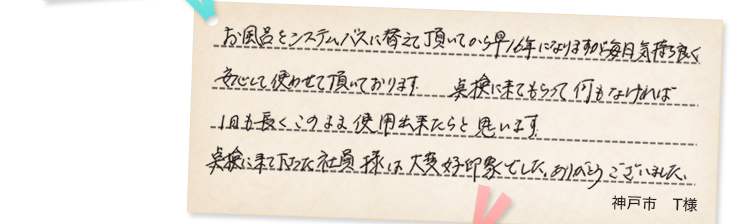 お風呂をシステムバスに替えて頂いてから早16年になりますが毎日気持ち良く
安心して使わせて頂いております 点検に来てもらって何もなければ
1日も長くこのまま使用出来たらと思います。
点検に来て下さった社員様は大変好印象でした。ありがとうございました。
神戸市 T様